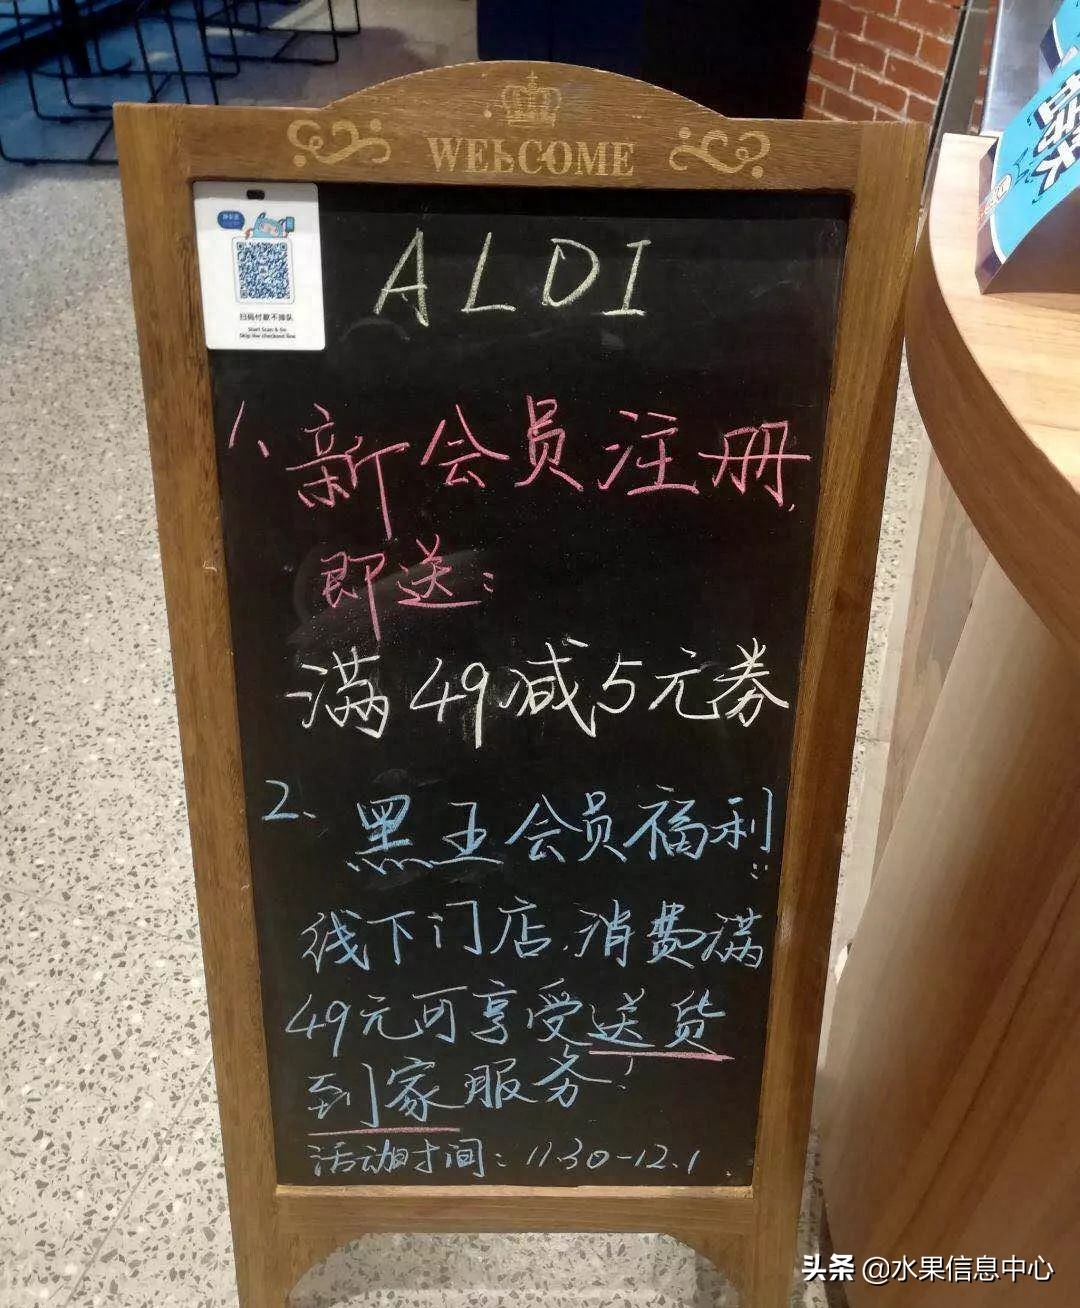 WELCOME
扫码付款不排队
Start Scan & Go
Skip the checkout line
ALDI
1、新会员注册,
即送：
满49减5元券
2、黑王会员福利：
线下门店,消费满
49元可享受送货
到家服务!
活动时间：11.30-12.1
头条 @水果信息中心